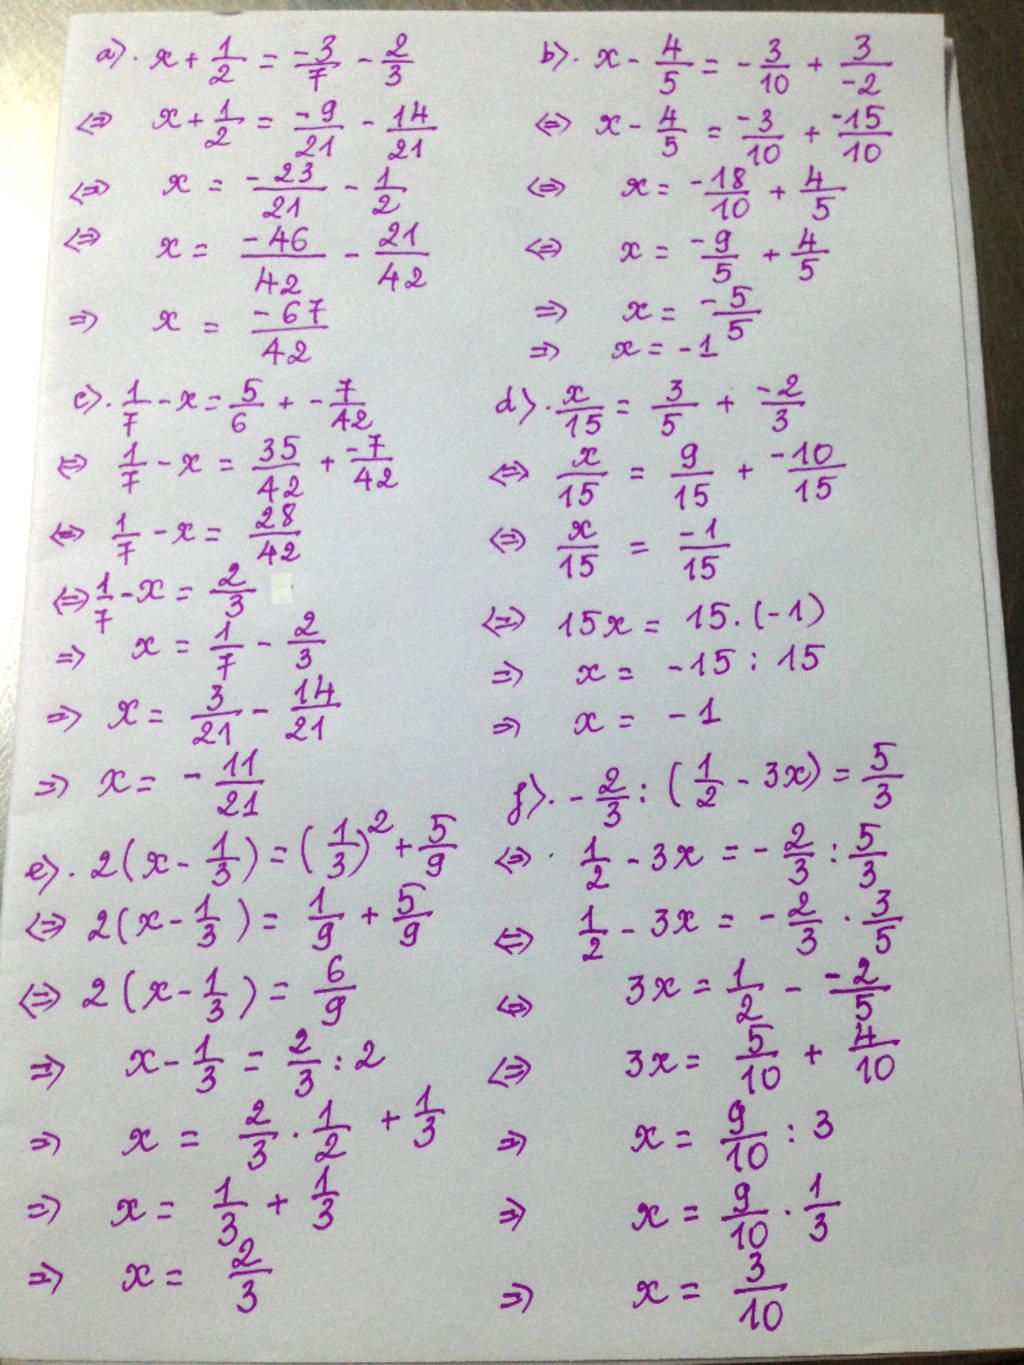 a). x + 1/2 = -3/7 - 2/3
⇔ x + 1/2 = -9/21 - 14/21
⇔ x = -23/21 - 1/2
⇔ x = -46/42 - 21/42
⇒ x = -67/42
b). x - 4/5 = -3/10 + 3/-2
⇔ x - 4/5 = -3/10 + -15/10
⇔ x = -18/10 + 4/5
⇔ x = -9/5 + 4/5
⇒ x = -5/5
⇒ x = -1
c). 1/7 - x = 5/6 + -7/42
⇔ 1/7 - x = 35/42 + -7/42
⇔ 1/7 - x = 28/42
⇔ 1/7 - x = 2/3
⇒ x = 1/7 - 2/3
⇒ x = 3/21 - 14/21
⇒ x = -11/21
d). x/15 = 3/5 + -2/3
⇔ x/15 = 9/15 + -10/15
⇔ x/15 = -1/15
⇔ 15x = 15.(-1)
⇒ x = -15 : 15
⇒ x = -1
e). 2(x - 1/3) = (1/3)² + 5/9
⇔ 2(x - 1/3) = 1/9 + 5/9
⇔ 2(x - 1/3) = 6/9
⇒ x - 1/3 = 2/3 : 2
⇒ x = 2/3 . 1/2 + 1/3
⇒ x = 1/3 + 1/3
⇒ x = 2/3
f). -2/3 : (1/2 - 3x) = 5/3
⇔ 1/2 - 3x = -2/3 : 5/3
⇔ 1/2 - 3x = -2/3 . 3/5
⇔ 3x = 1/2 - -2/5
⇔ 3x = 5/10 + 4/10
⇒ x = 9/10 : 3
⇒ x = 9/10 . 1/3
⇒ x = 3/10